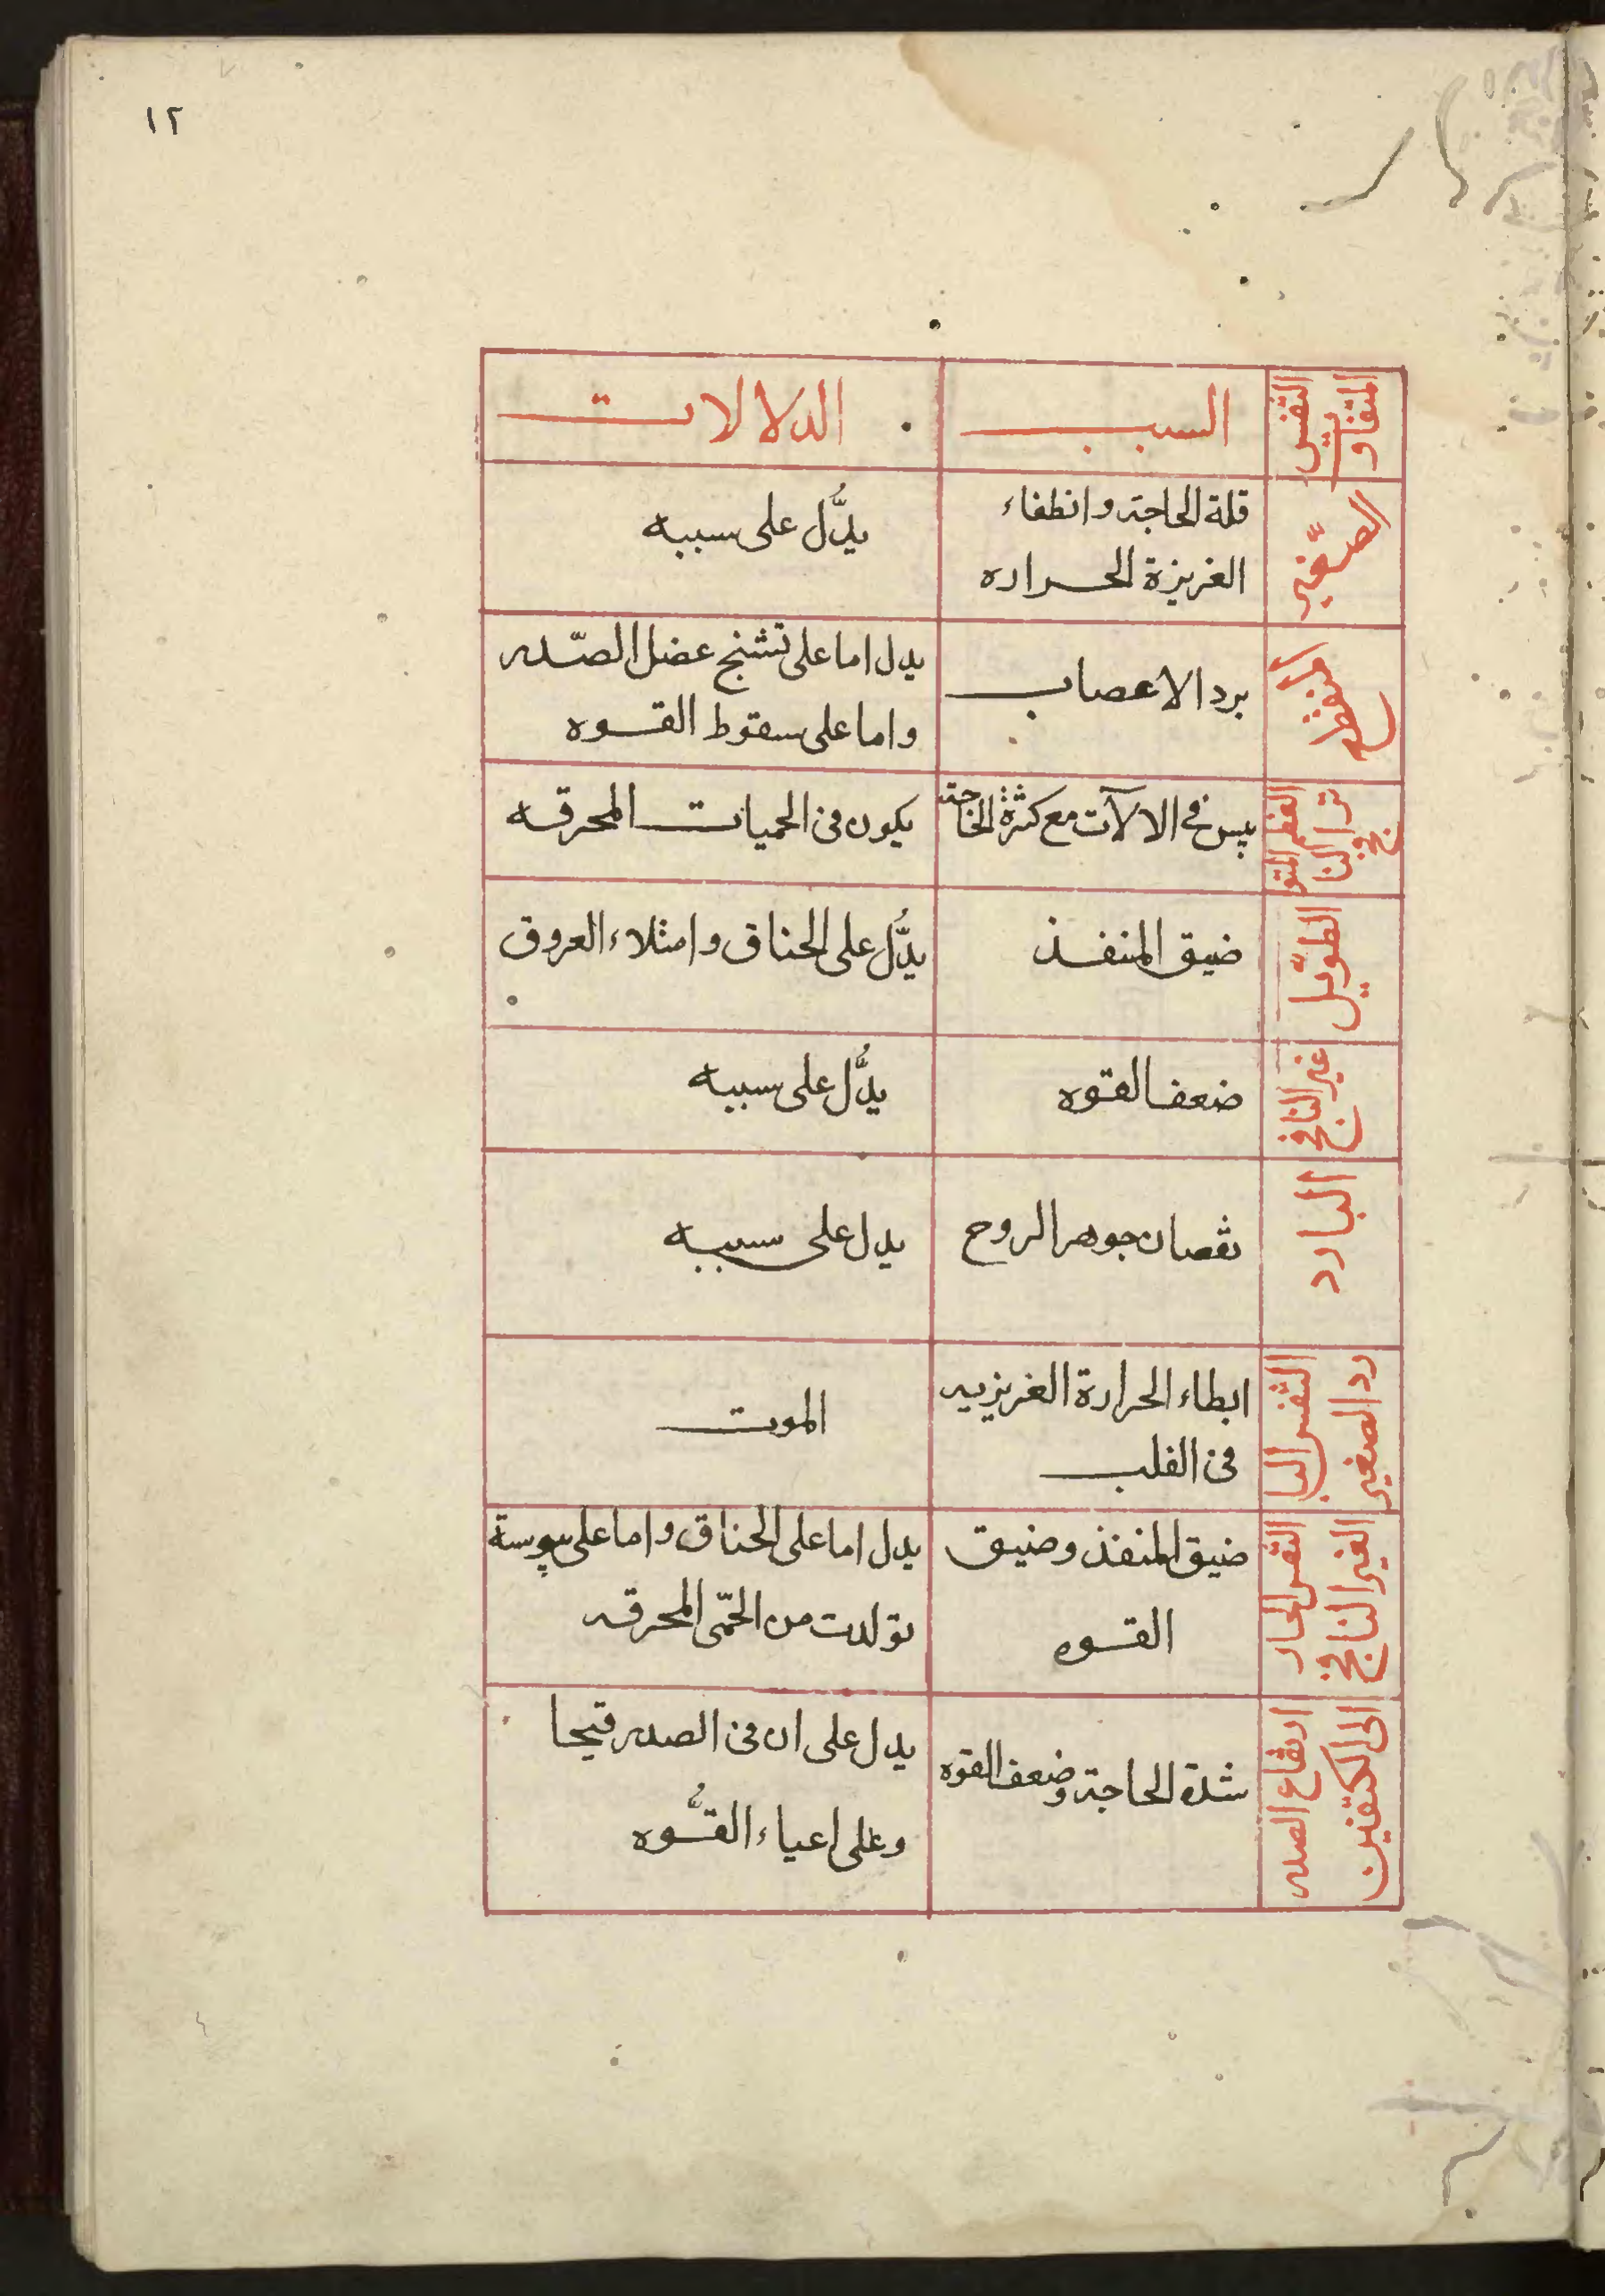 ١٢
النفس المتفاوت
السبب
الدلالات
الصّغير
قلة الحاجة وانطفاء
الغريزة الحراره
يدُّل على سببه
المنقطع
برد الاعصاب
يدل اما على تشنج عضل الصّدر
واما على سقوط القوه
العظم المتوا
تر النافخ
يبس فى الالآت مع كثرة الحاجة
يكون فى الحميات المحرقه
الطوّيل
ضيق المنفذ
يدُّل على الخناق وامتلاء العروق
غير النافخ
ضعف القوه
يدُّل على سببه
البارد
نقصان جوهر الروح
يدل على سببه
النفس البا
رد الصغير
ابطاء الحرارة الغريزيه
فى القلب
الموت
النفس الحار
الغير النافخ
ضيق المنفذ وضيق
القوه
يدل اما على الخناق واما على يبوسة
تولدت من الحمّى المحرقه
ارتفاع الصدر
الى الكتفين
شدة الحاجة وضعف القوه
يدل على ان فى الصدر قيحا
وعلى اعياء القُّوه